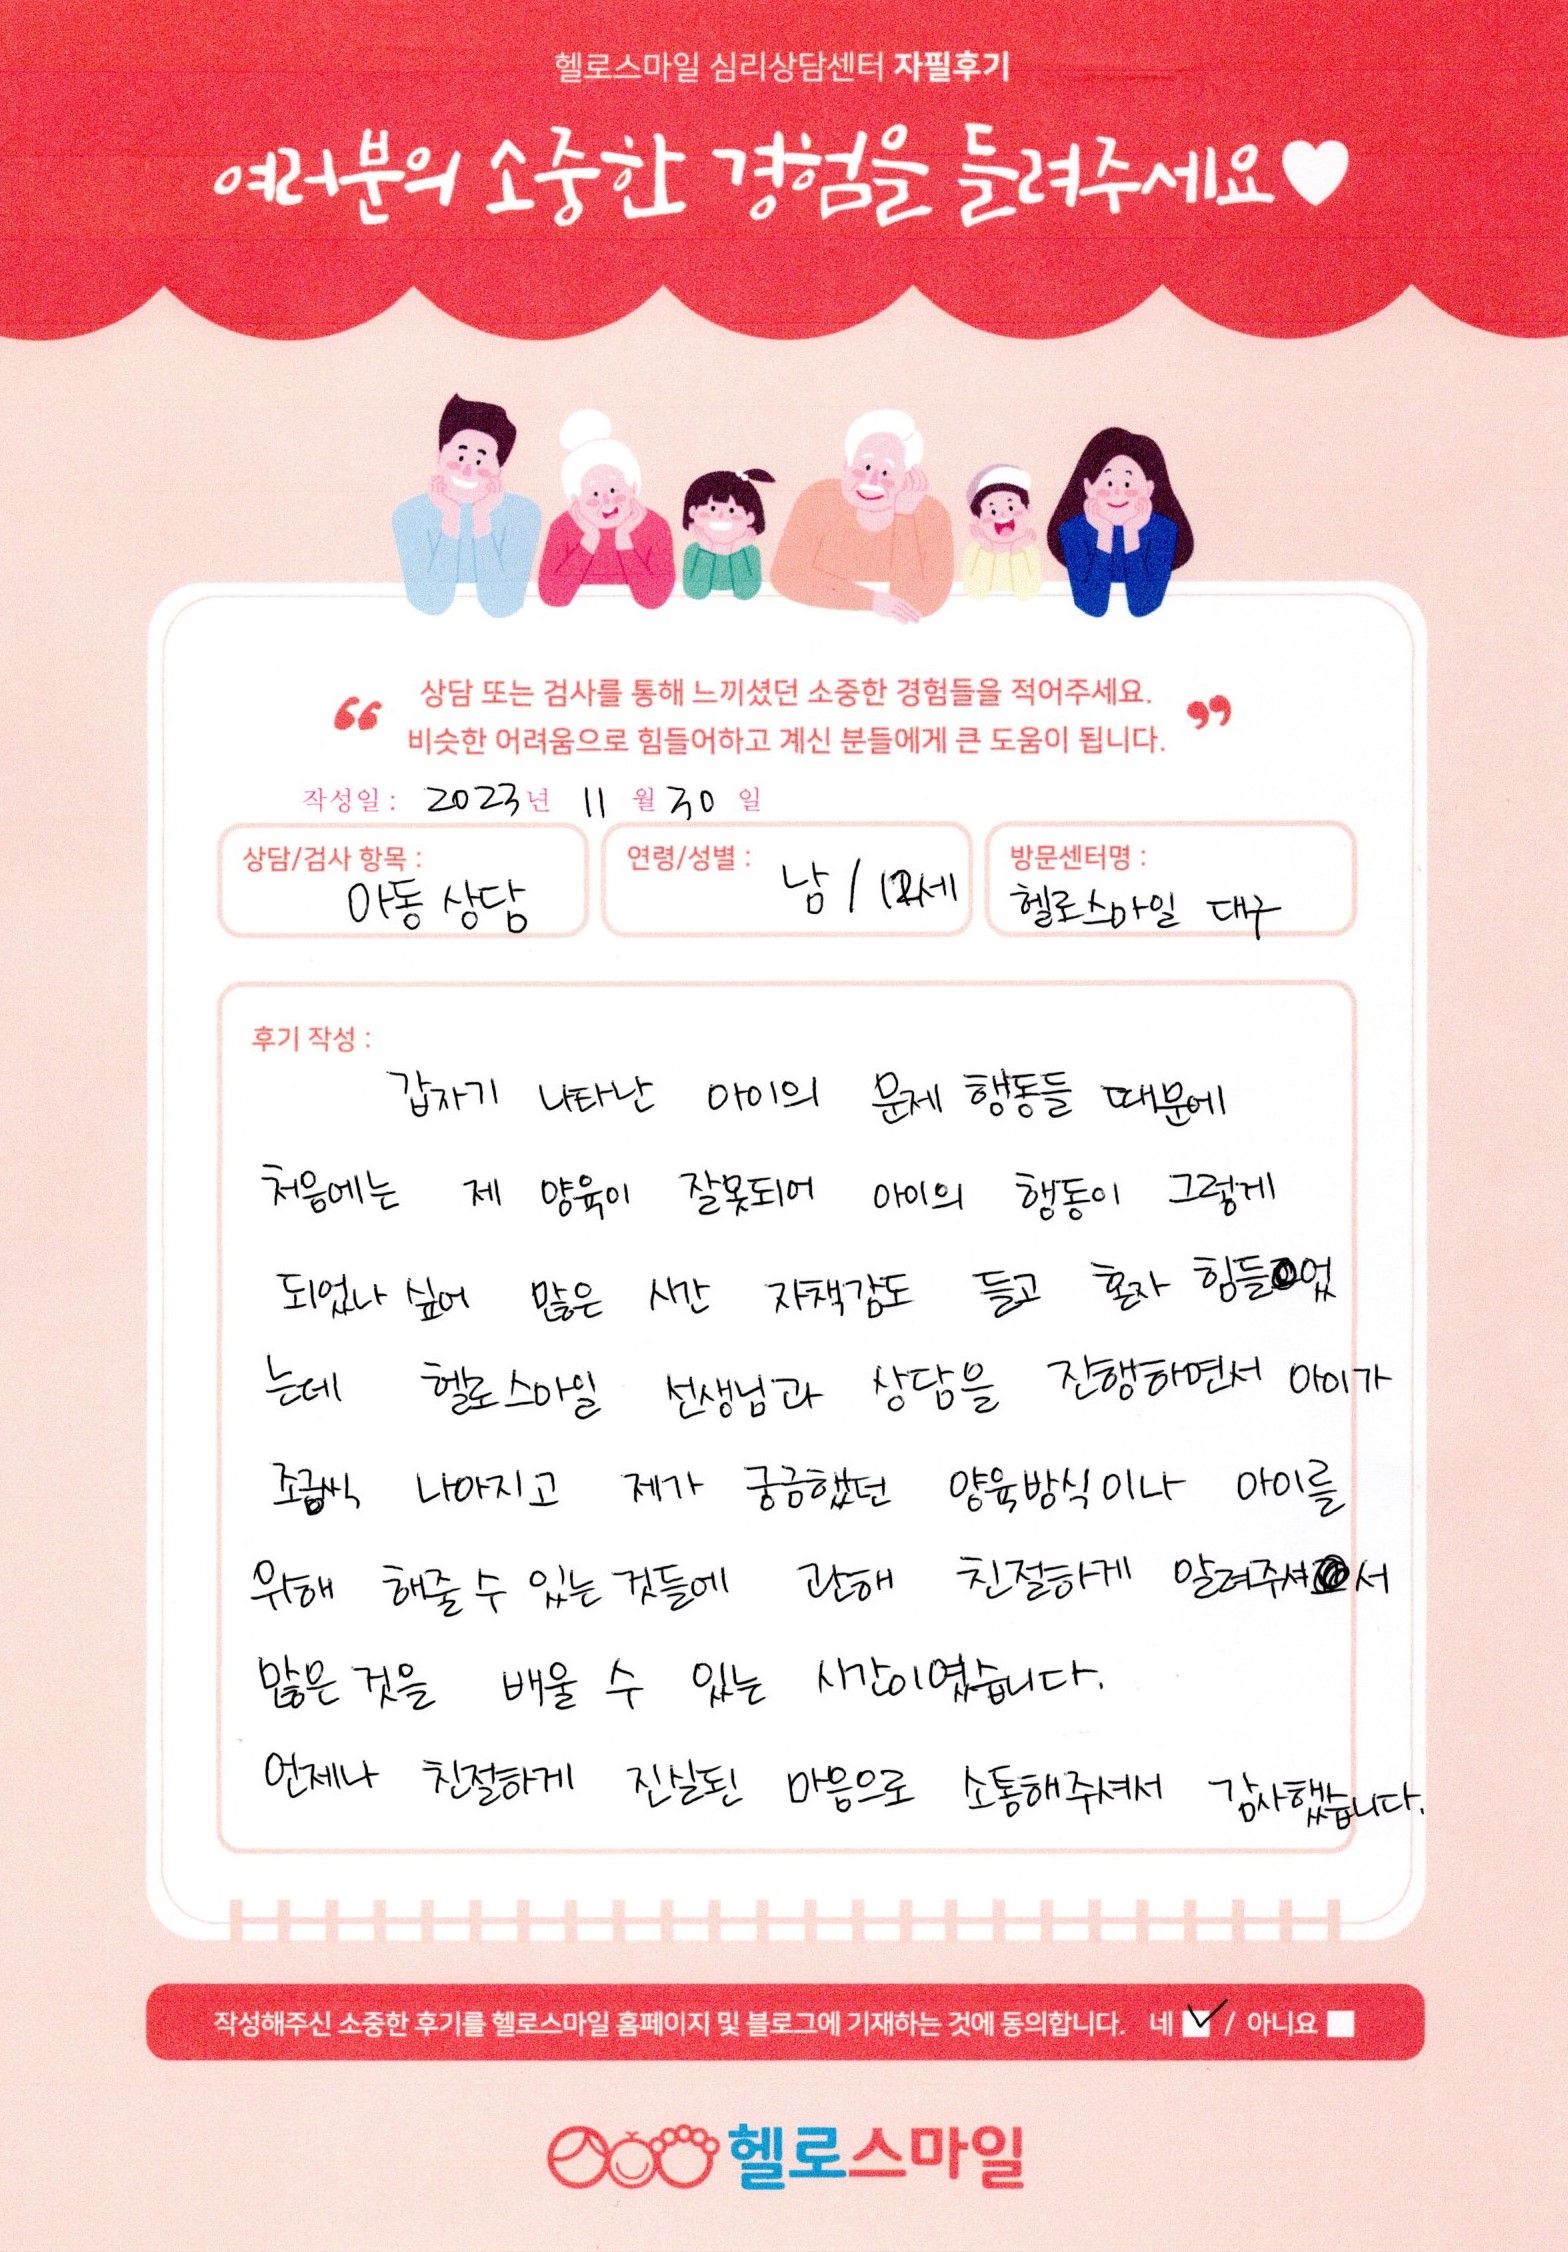 헬로스마일 심리상담센터 자필후기
여러분의 소중한 경험을 들려주세요♥
“ 상담 또는 검사를 통해 느끼셨던 소중한 경험들을 적어주세요.
비슷한 어려움으로 힘들어하고 계신 분들에게 큰 도움이 됩니다. ”
작성일 : 2023년 11월 30일
상담/검사 항목 : 아동 상담
연령/성별 : 남 / 12세
방문센터명 : 헬로스마일 대구
후기 작성 :
갑자기 나타난 아이의 문제 행동들 때문에
처음에는 제 양육이 잘못되어 아이의 행동이 그렇게
되었나 싶어 많은 시간 자책감도 들고 혼자 힘들었
는데 헬로스마일 선생님과 상담을 진행하면서 아이가
조금씩 나아지고 제가 궁금했던 양육방식이나 아이를
위해 해줄 수 있는 것들에 관해 친절하게 알려주셔서
많은 것을 배울 수 있는 시간이였습니다.
언제나 친절하게 진실된 마음으로 소통해주셔서 감사했습니다.
작성해주신 소중한 후기를 헬로스마일 홈페이지 및 블로그에 기재하는 것에 동의합니다. 네 ✓ / 아니요
헬로스마일